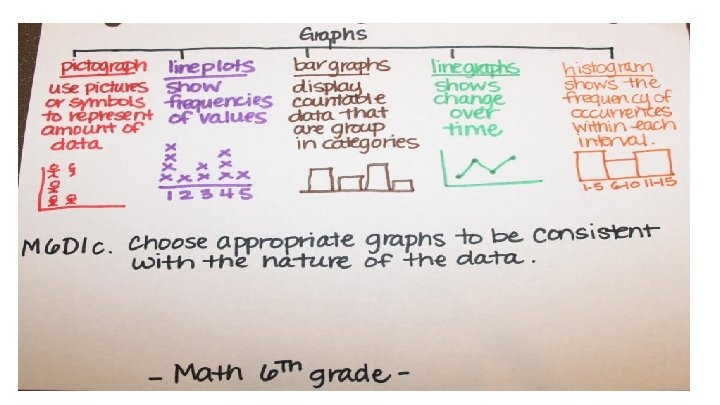 Graphs
pictograph
use pictures
or symbols
to represent
amount of
data
lineplots
show
frequencies
of values
1 2 3 4 5
bar graphs
display
countable
data that
are group
in categories
line graphs
shows
change
over
time
histogram
shows the
frequency of
occurrences
within each
interval.
1-5 6-10 11-15
M6D1c. Choose appropriate graphs to be consistent
with the nature of the data.
- Math 6th grade -